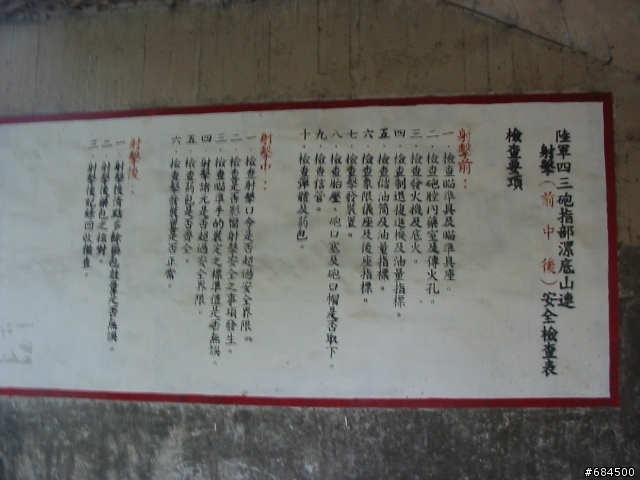 陸軍四三砲指部漯底山連
射擊(前中後)安全檢查表
檢查要項
射擊前:
一、檢查瞄準具及瞄準具座。
二、檢查砲膛內藥室及傳火孔。
三、檢查發火機及底火。
四、檢查制退復進機及油量指標。
五、檢查儲油筒及油量指標。
六、檢查象限儀座及後座指標。
七、檢查擊發裝置。
八、檢查胎壓、砲口塞及砲口帽是否取下。
九、檢查信管。
十、檢查彈體及葯包。
射擊中:
一、檢查射擊口令是否超過安全界限。
二、檢查是否影響射擊安全之事項發生。
三、檢查瞄準手的裝定之標準值是否無誤。
四、射擊諸元是否超過安全界限。
五、檢查葯包是否齊全。
六、檢查擊發裝置是否正常。
射擊後:
一、射擊後清點多餘藥包數量是否無誤。
二、射擊後藥包之核對。
三、射擊後紀錄回收檢查。
#684500